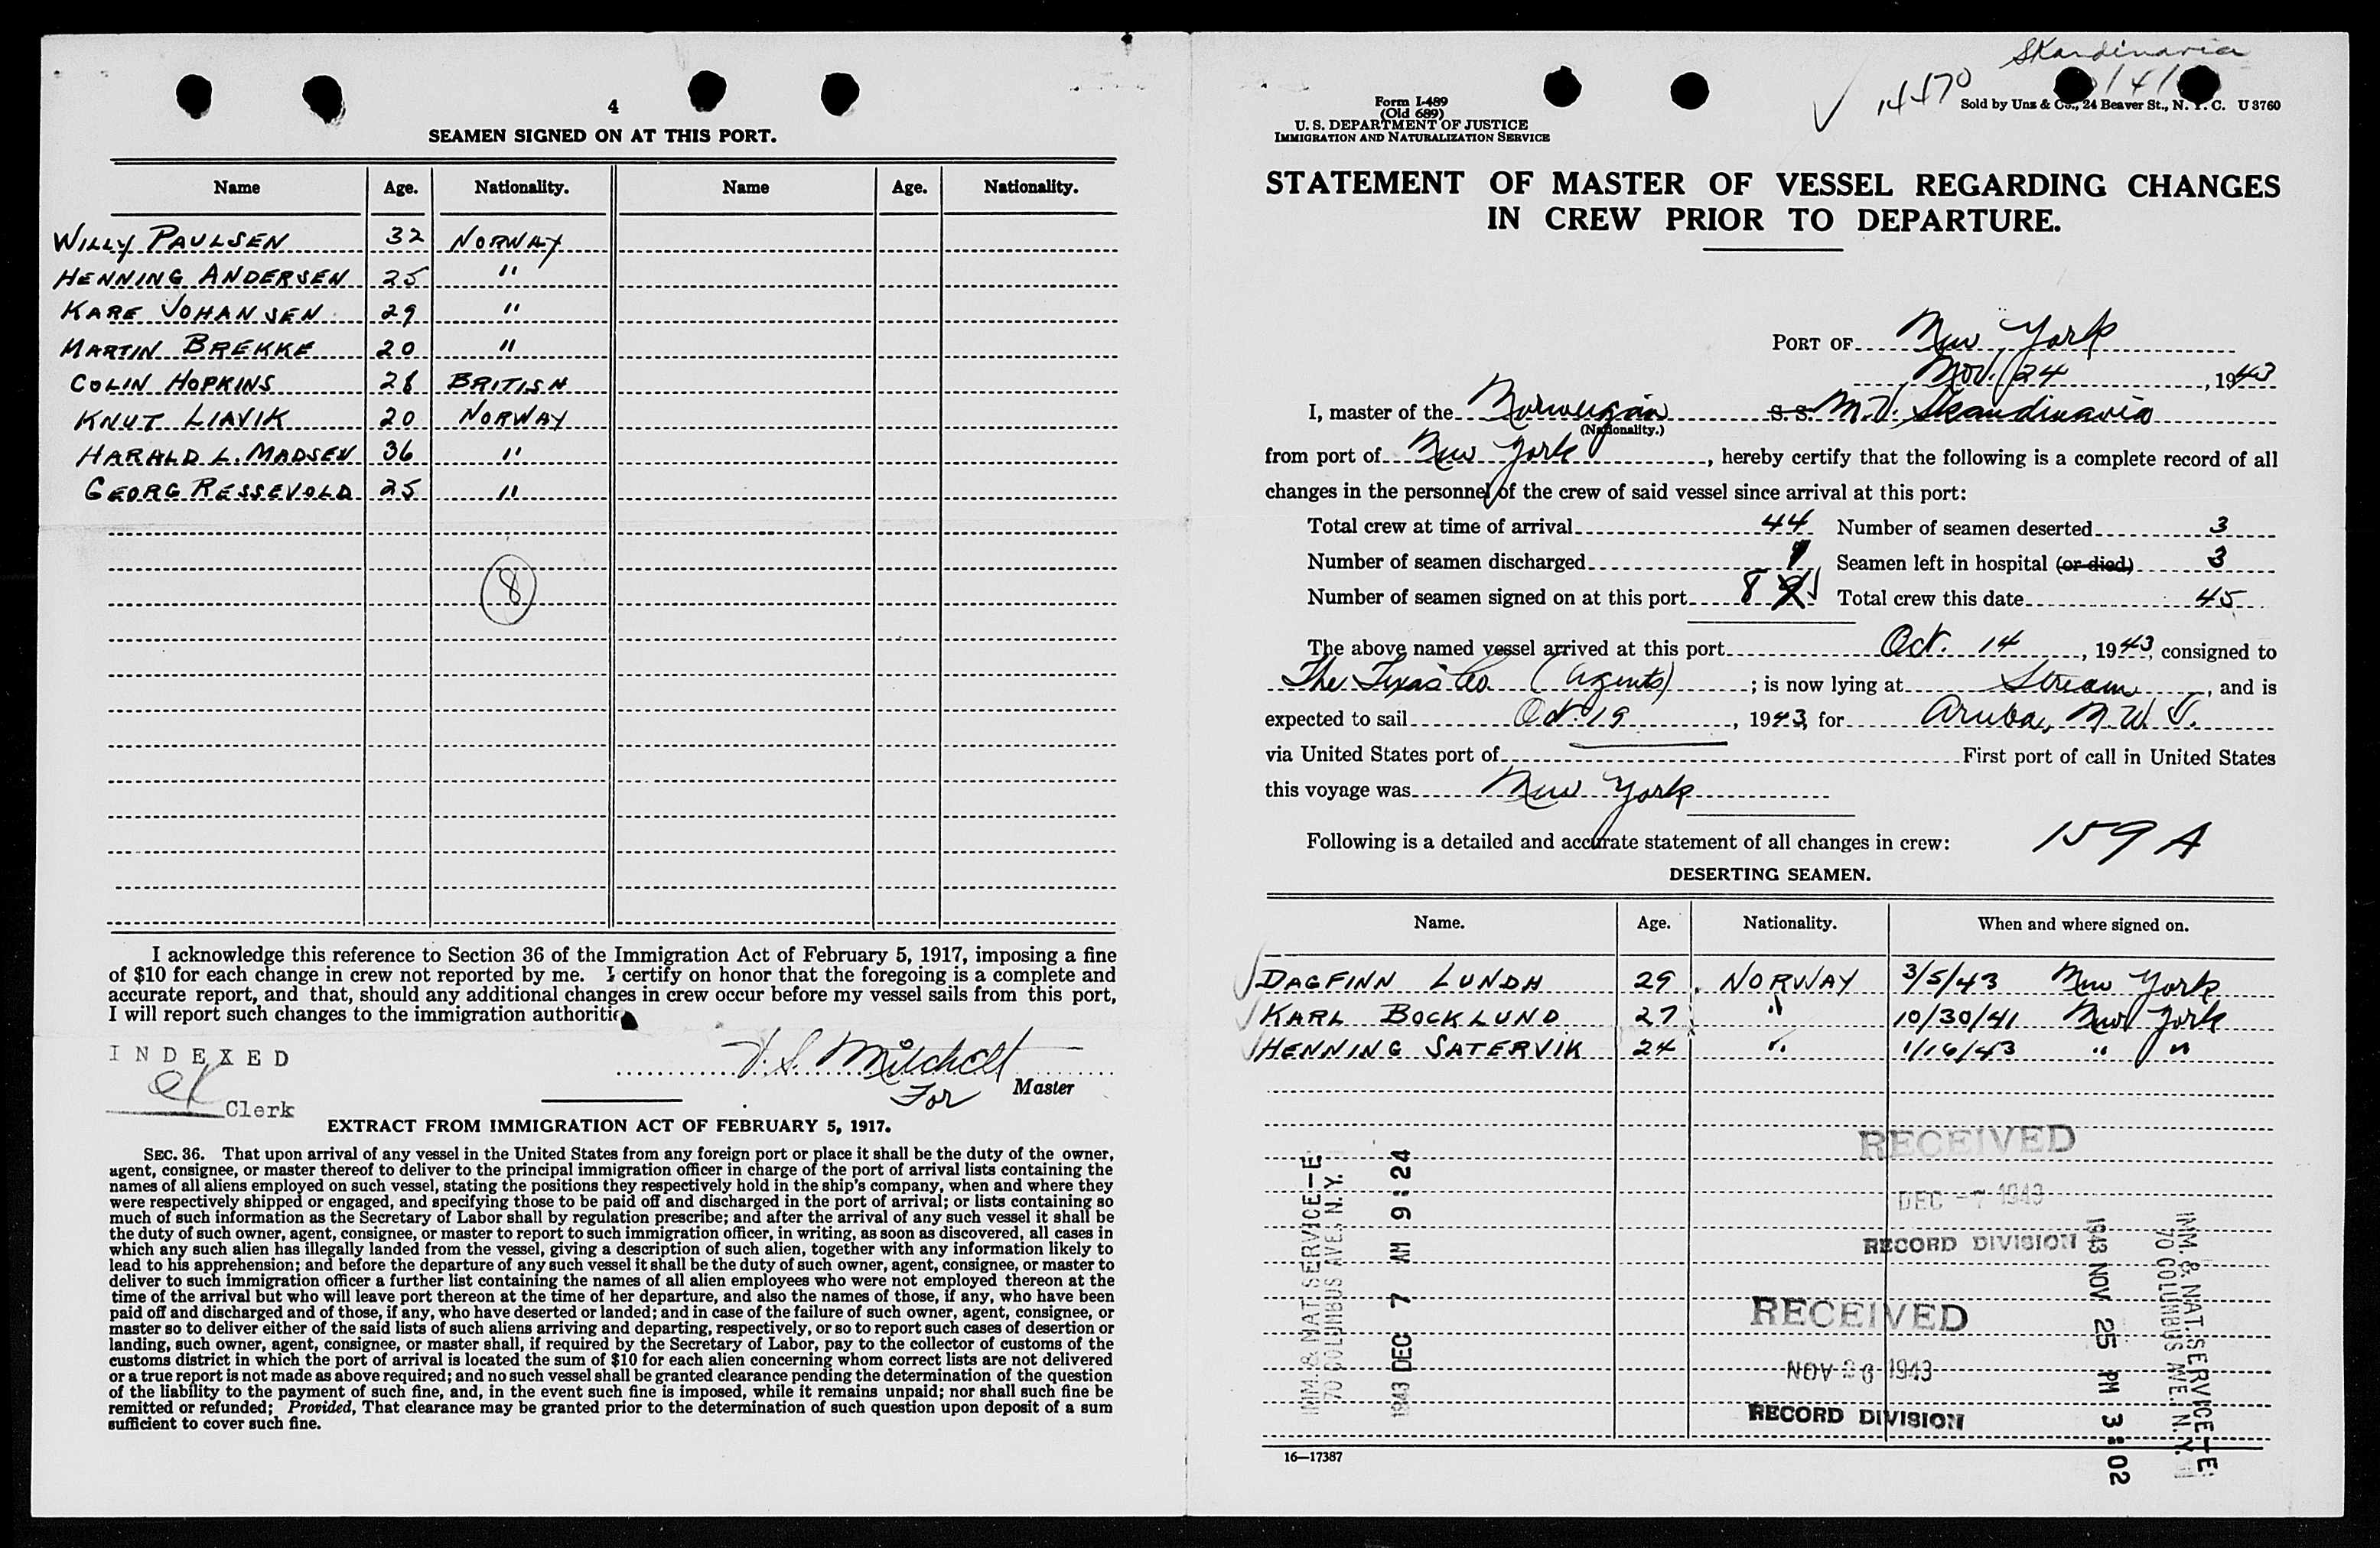 4
SEAMEN SIGNED ON AT THIS PORT.
Name Age. Nationality. Name Age. Nationality.
WILLY PAULSEN 32 NORWAY
HENNING ANDERSEN 25 "
KARE JOHANSEN 29 "
MARTIN BREKKE 20 "
COLIN HOPKINS 28 BRITISH
KNUT LIAVIK 20 NORWAY
HARALD L. MADSEN 36 "
GEORG RESSEVOLD 25 "
8
I acknowledge this reference to Section 36 of the Immigration Act of February 5, 1917, imposing a fine
of $10 for each change in crew not reported by me. I certify on honor that the foregoing is a complete and
accurate report, and that, should any additional changes in crew occur before my vessel sails from this port,
I will report such changes to the immigration authoritie
INDEXED
Clerk
Mitchell
For Master
EXTRACT FROM IMMIGRATION ACT OF FEBRUARY 5, 1917.
SEC. 36. That upon arrival of any vessel in the United States from any foreign port or place it shall be the duty of the owner,
agent, consignee, or master thereof to deliver to the principal immigration officer in charge of the port of arrival lists containing the
names of all aliens employed on such vessel, stating the positions they respectively hold in the ship's company, when and where they
were respectively shipped or engaged, and specifying those to be paid off and discharged in the port of arrival; or lists containing so
much of such information as the Secretary of Labor shall by regulation prescribe; and after the arrival of any such vessel it shall be
the duty of such owner, agent, consignee, or master to report to such immigration officer, in writing, as soon as discovered, all cases in
which any such alien has illegally landed from the vessel, giving a description of such alien, together with any information likely to
lead to his apprehension; and before the departure of any such vessel it shall be the duty of such owner, agent, consignee, or master to
deliver to such immigration officer a further list containing the names of all alien employees who were not employed thereon at the
time of the arrival but who will leave port thereon at the time of her departure, and also the names of those, if any, who have been
paid off and discharged and of those, if any, who have deserted or landed; and in case of the failure of such owner, agent, consignee, or
master so to deliver either of the said lists of such aliens arriving and departing, respectively, or so to report such cases of desertion or
landing, such owner, agent, consignee, or master shall, if required by the Secretary of Labor, pay to the collector of customs of the
customs district in which the port of arrival is located the sum of $10 for each alien concerning whom correct lists are not delivered
or a true report is not made as above required; and no such vessel shall be granted clearance pending the determination of the question
of the liability to the payment of such fine, and, in the event such fine is imposed, while it remains unpaid; nor shall such fine be
remitted or refunded; Provided, That clearance may be granted prior to the determination of such question upon deposit of a sum
sufficient to cover such fine.
Skandinavia
Form I-489
(Old 689)
U. S. DEPARTMENT OF JUSTICE
IMMIGRATION AND NATURALIZATION SERVICE
Sold by Unz & Co., 24 Beaver St., N. Y. C. U 3760
STATEMENT OF MASTER OF VESSEL REGARDING CHANGES
IN CREW PRIOR TO DEPARTURE.
PORT OF New York
Nov. 24, 1943
I, master of the Norwegian S. S. M.V. Skandinavia
(Nationality.)
from port of New York, hereby certify that the following is a complete record of all
changes in the personnel of the crew of said vessel since arrival at this port:
Total crew at time of arrival 44 Number of seamen deserted 3
Number of seamen discharged 1 Seamen left in hospital (or died) 3
Number of seamen signed on at this port 8 Total crew this date 45
The above named vessel arrived at this port Oct. 14, 1943, consigned to
The Texas Co. (Agents); is now lying at Stream, and is
expected to sail Oct. 19, 1943, for Aruba, N.W.I.
via United States port of First port of call in United States
this voyage was New York
Following is a detailed and accurate statement of all changes in crew: 159 A
DESERTING SEAMEN.
Name. Age. Nationality. When and where signed on.
DAGFINN LUNDH 29 NORWAY 3/5/43 New York
KARL BOCKLUND 27 " 10/30/41 New York
HENNING SATERVIK 24 " 1/16/43 " "
RECEIVED
DEC -7 1943
RECORD DIVISION
RECEIVED
NOV 26 1943
RECORD DIVISION
IMM. & NAT. SERVICE-E
70 COLUMBUS AVE., N. Y.
1943 DEC 7 AM 9:24
1943 NOV 25 PM 3:02
IMM. & NAT. SERVICE-E
70 COLUMBUS AVE., N. Y.
16—17387